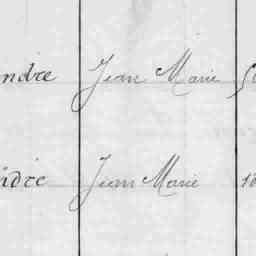 ndre Jean Marie
ndre Jean Marie